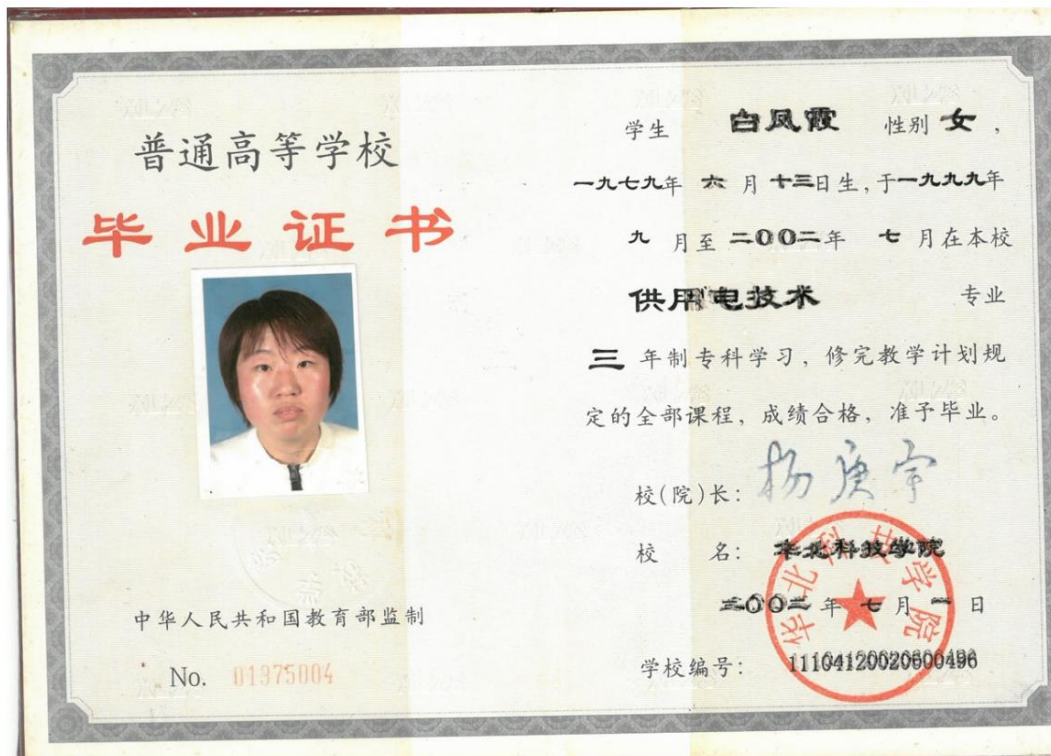 普通高等学校
毕业证书
中华人民共和国教育部监制
No. 01975004
学生 白凤霞 性别 女，
一九七九年 六 月 十三日生，于一九九九年
九 月至 二〇〇二年 七 月在本校
供用电技术 专业
三 年制专科学习，修完教学计划规
定的全部课程，成绩合格，准予毕业。
校(院)长：杨庚宇
校 名：华北科技学院
二〇〇二 年 七 月 一 日
学校编号：111041200206000496
华北科技学院